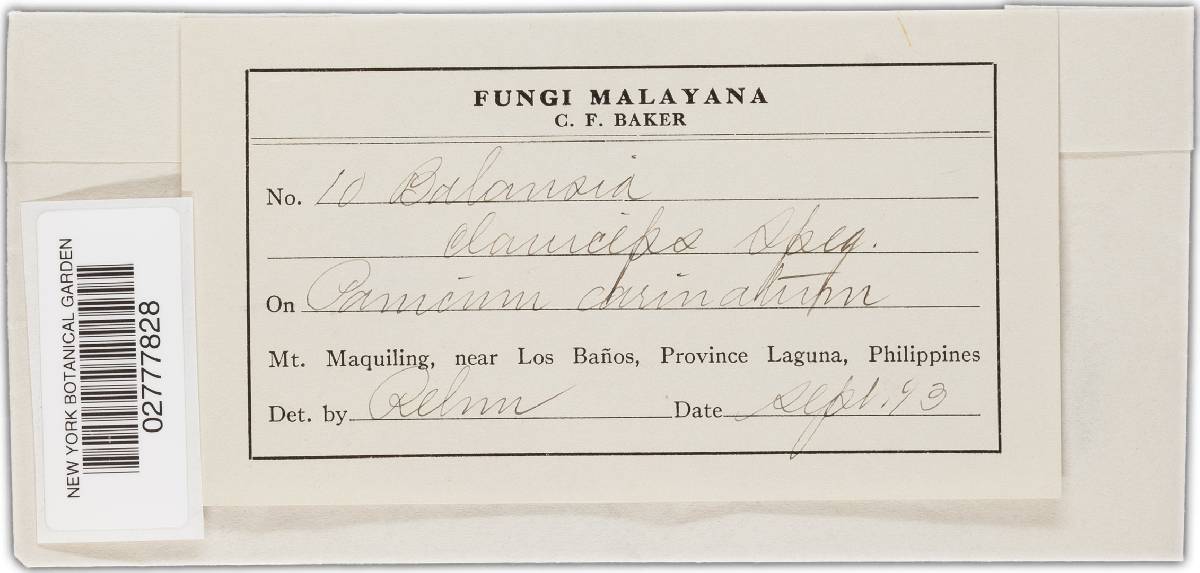 FUNGI MALAYANA
C. F. BAKER
No. 10 Balansia
claviceps Speg.
On Panicum carinatum
Mt. Maquiling, near Los Baños, Province Laguna, Philippines
Det. by Rehm Date Sept. 13
NEW YORK BOTANICAL GARDEN
02777828